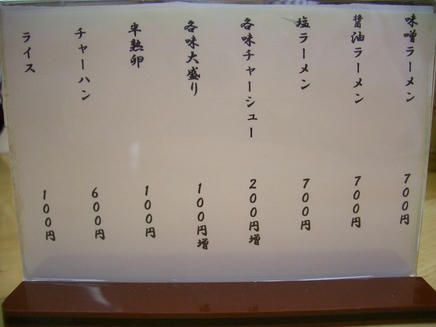 味噌ラーメン 700円
醤油ラーメン 700円
塩ラーメン 700円
各味チャーシュー 200円増
各味大盛り 100円増
半熟卵 100円
チャーハン 600円
ライス 100円